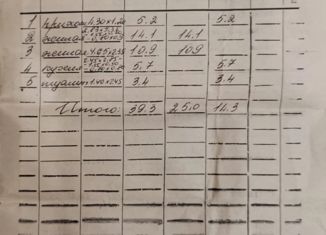 1 прихож 4.30×1.20 5.2 5.2
2 жилая 14.1 14.1
3 жилая 4.25×2.55 10.9 10.9
4 кухня 5.7 5.7
5 туалет 1.40×2.45 3.4 3.4
Итого: 39.3 25.0 14.3